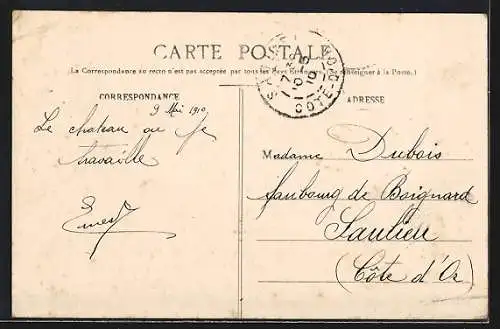 CARTE POSTALE
(La Correspondance au recto n'est pas acceptée par tous les pays Étrangers. Se renseigner à la Poste.)
CORRESPONDANCE
ADRESSE
9 Mai 1910
Le chateau ou je
travaille
Ernest
Madame Dubois
faubourg de Boignard
Saulieu
(Côte d'Or)
CÔTE-D'OR